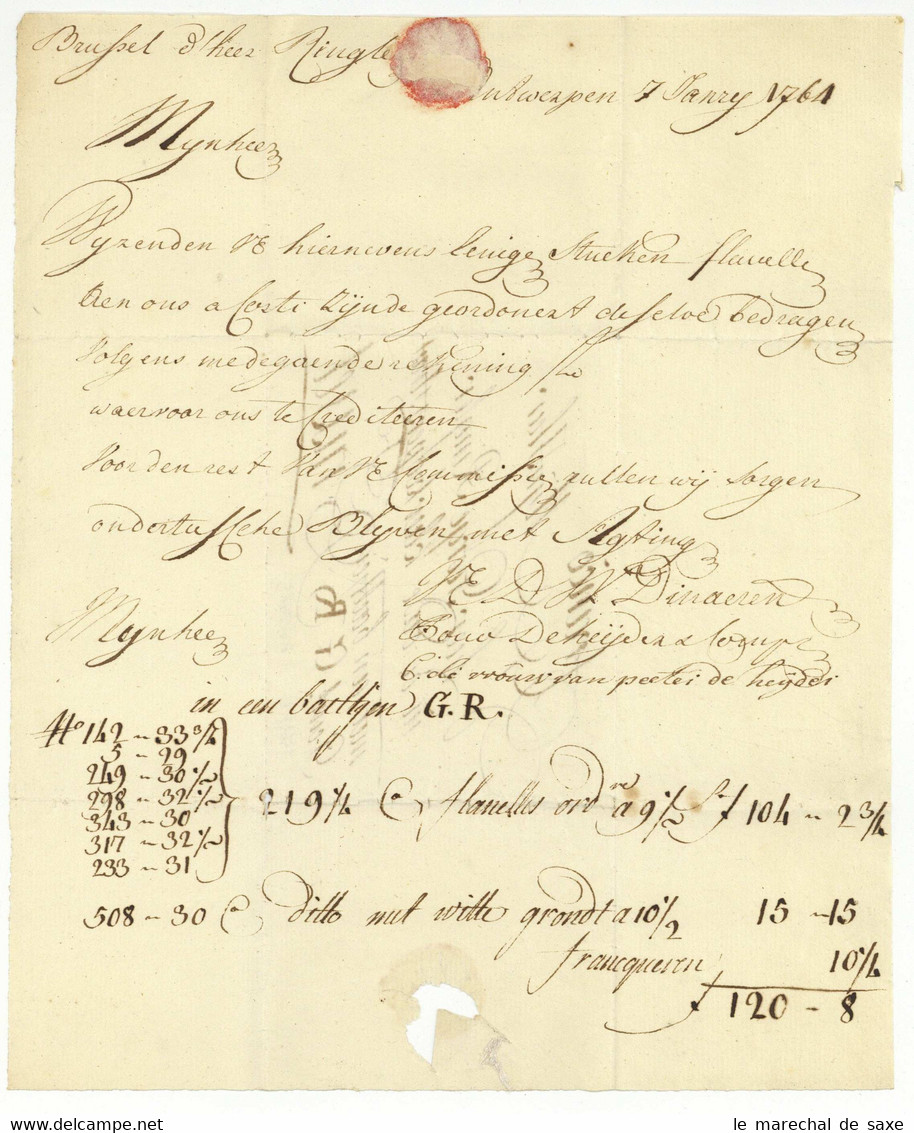 Brussel d'heer Ringle
Antwerpen 7 Janry 1764
Mynheer
Wy zenden VE hiernevens Eenige Stucken flanelle
Ben ons a Costi Zijnde geordonert deselve bedragen
Volgens medegaende rekening
waervoor ons te Crediteeren
Voor den rest Van VE Commissie zullen wij sorgen
ondertussche Blyven met Agting
VE D W Dinaeren
De heijder & Comp
vrouw van peeter de heijder
Mynheer
in een baeltjen G.R.
No 142 - 33 3/4
5 - 29
249 - 30 1/2
298 - 32 1/2
343 - 30
317 - 32 1/2
233 - 31
219 1/4 flanelles ordre a 9 1/2 f 104 - 2 3/4
508 - 30 ditto met witte grondt a 10 1/2 15 - 15
francqueren 10 1/4
f 120 - 8
www.delcampe.net
le marechal de saxe